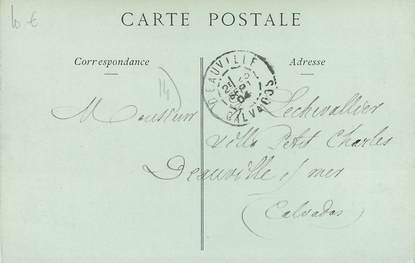 10 €
CARTE POSTALE
Correspondance
Adresse
14
DEAUVILLE
CALVADOS
Monsieur Lechevallier
Villa Petit Charles
Deauville s/ mer
(Calvados)